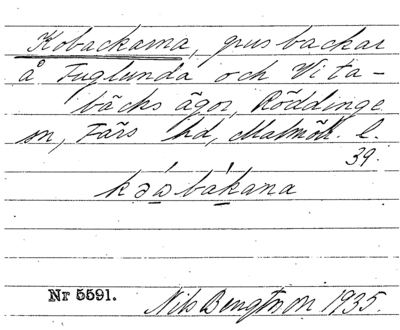 Kobackarna, grusbackar
å Fuglunda och Vita-
bäcks ägor, Röddinge
sn, Färs hd, Malmöh. l.
39.
kəωbákana
Nr 5591. Nils Bengtsson 1935.